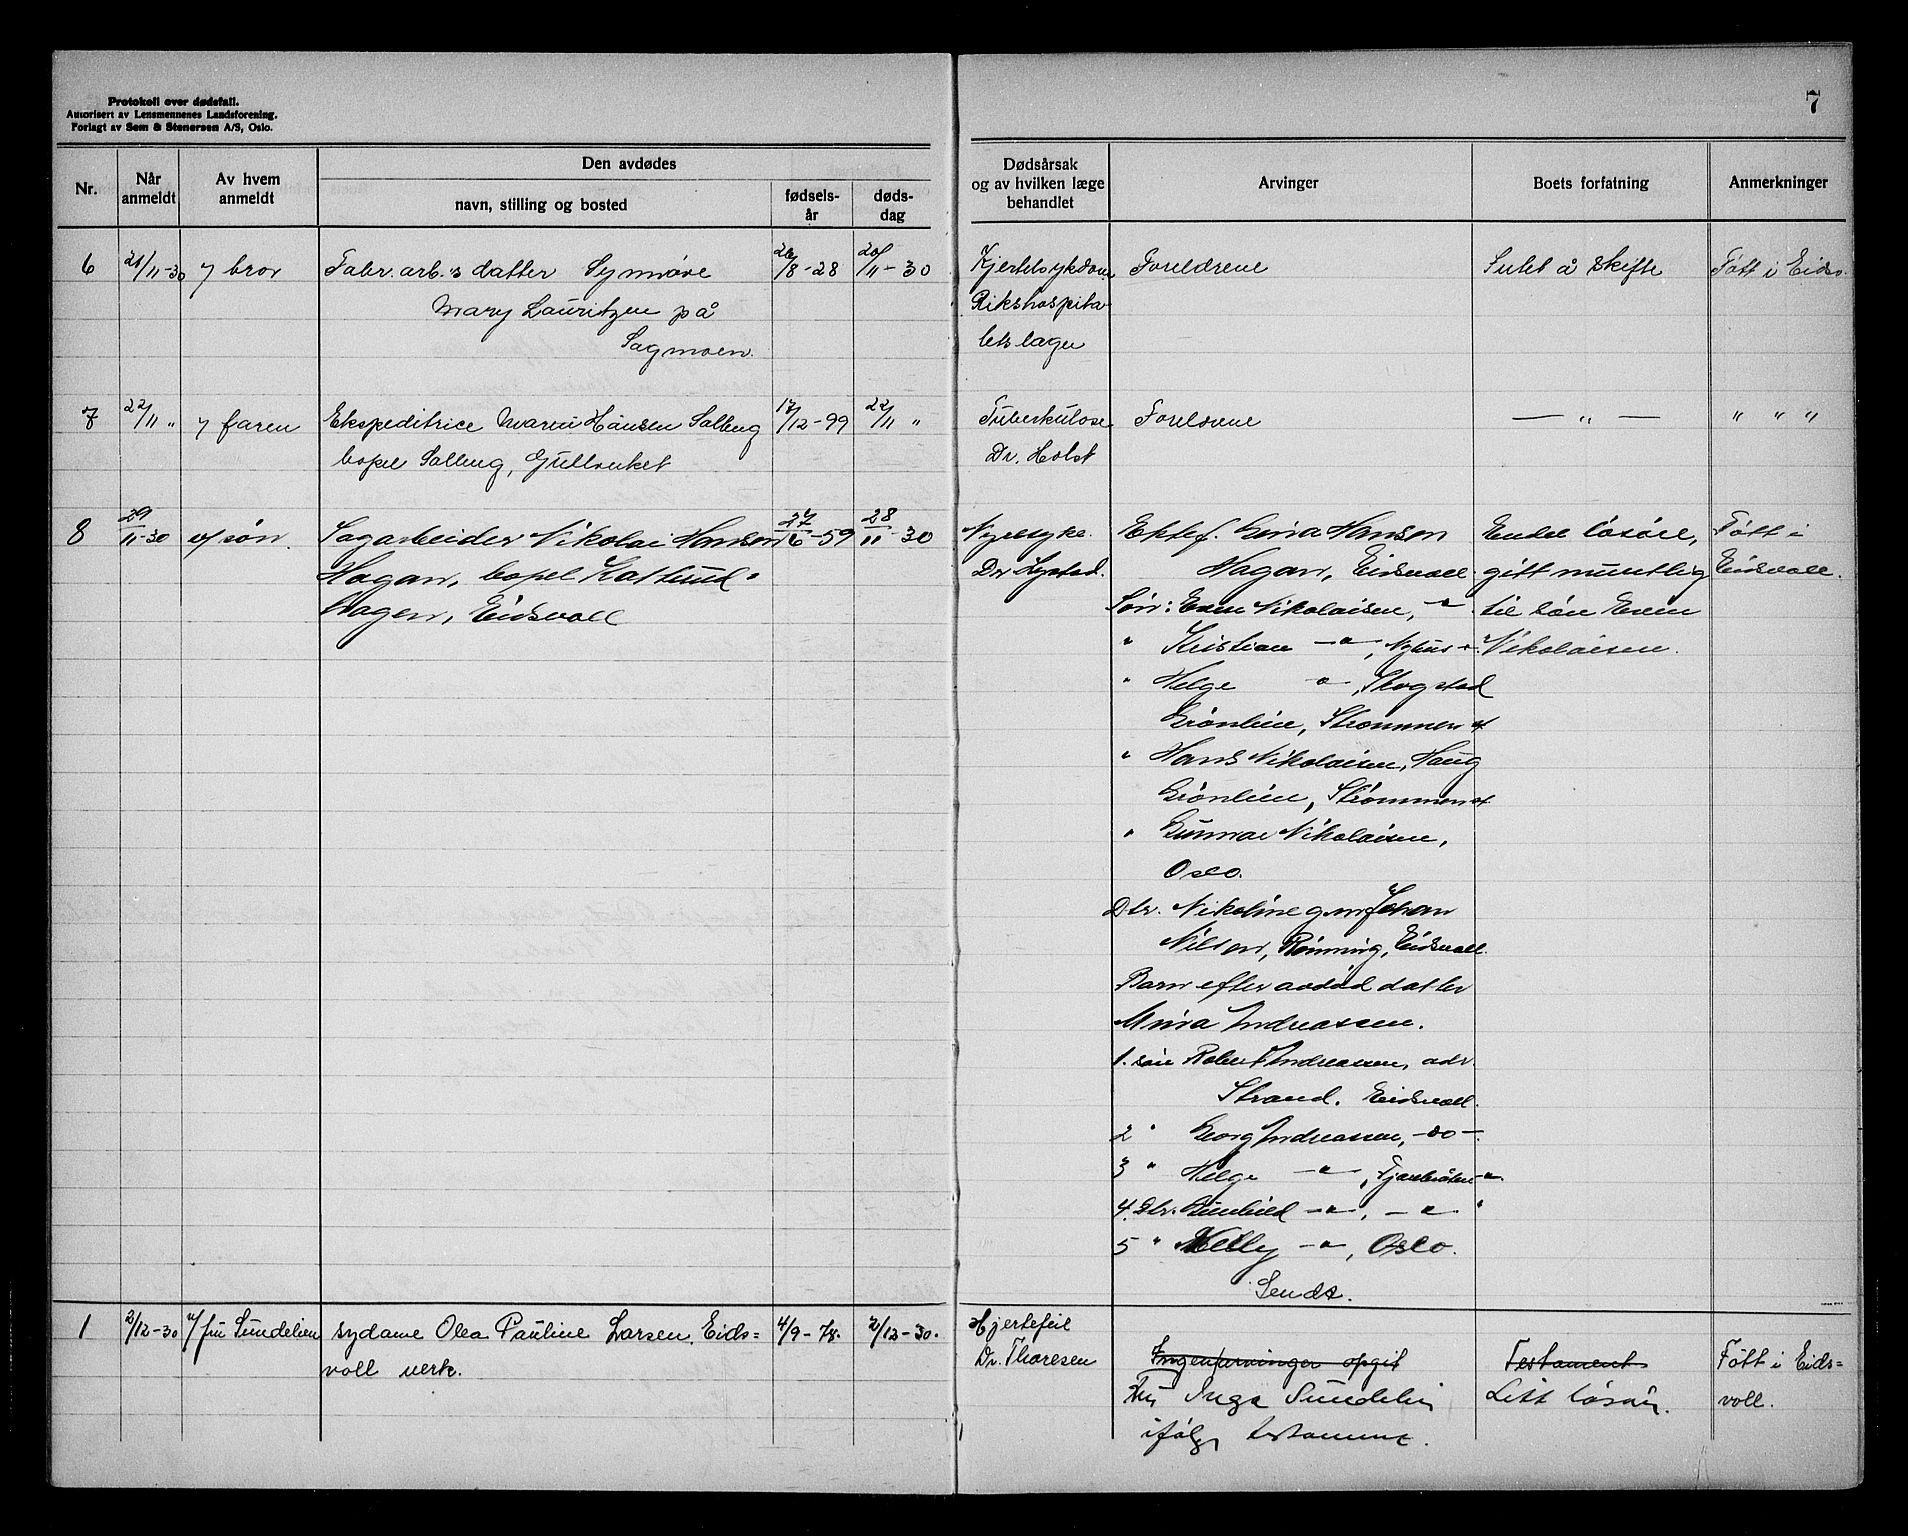 Protokoll over dødsfall.
Autorisert av Lensmennenes Landsforening.
Forlagt av Sem & Stenersen A/S, Oslo.
7
Nr.
Når anmeldt
Av hvem anmeldt
Den avdødes
navn, stilling og bosted
fødsels-år
døds-dag
Dødsårsak og av hvilken læge behandlet
Arvinger
Boets forfatning
Anmerkninger
6 21/11-30 v/ bror Fabr. arb.s datter Synnøve 26/8-28 20/11-30 Kjertelsykdom Foreldrene Intet å skifte Føtt i Eidsv.
Mary Lauritzen på Rikshospita-
Sagmoen. lets læger
7 22/11 " v/ faren Ekspeditrice Marie Hansen Solberg 17/12-99 22/11 " Tuberkulose Foreldrene — " — " " "
bopel Solberg, Gullverket Dr. Holst
8 29/11-30 v/ søn. Sagarbeider Nikolai Hansen 27/6-59 28/11-30 Nyresyke. Ektef. Hansen Endel løsøre, Føtt i
Hagan, bopel Dr. Lystad. Hagan, Eidsvoll gitt muntlig Eidsvoll.
hagen, Eidsvoll Søn: Even Nikolaisen, -"- til søn Even
" Kristian -"-, Nyhus -"- Nikolaisen.
" Helge -"-, Skogstad
Grønlien, Strømmen st
" Hans Nikolaisen, Haug
Grønlien, Strømmen st
" Gunnar Nikolaisen,
Oslo.
Dtr. Nikoline g. m. Johan
Nilsen, Rønning, Eidsvoll.
Barn efter avdød datter
Mina Andreassen.
1. søn Robert Andreassen, adr.
Strand. Eidsvoll.
2 " Georg Andreassen, -do-.
3 " Helge -"-,
4. Dtr. Gunhild -"-, -"- "
5 " Nelly -"-, Oslo.
Sendt.
1 2/12-30 v/ fru Sundelien sydame Olea Pauline Larsen, Eids= 4/9-78. 2/12-30. Hjertefeil
voll verk. Dr. Thoresen Ingen arvinger opgit Testament Føtt i Eids=
Fru Inga Sundelin Litt løsøre. voll.
ifølge testamente.